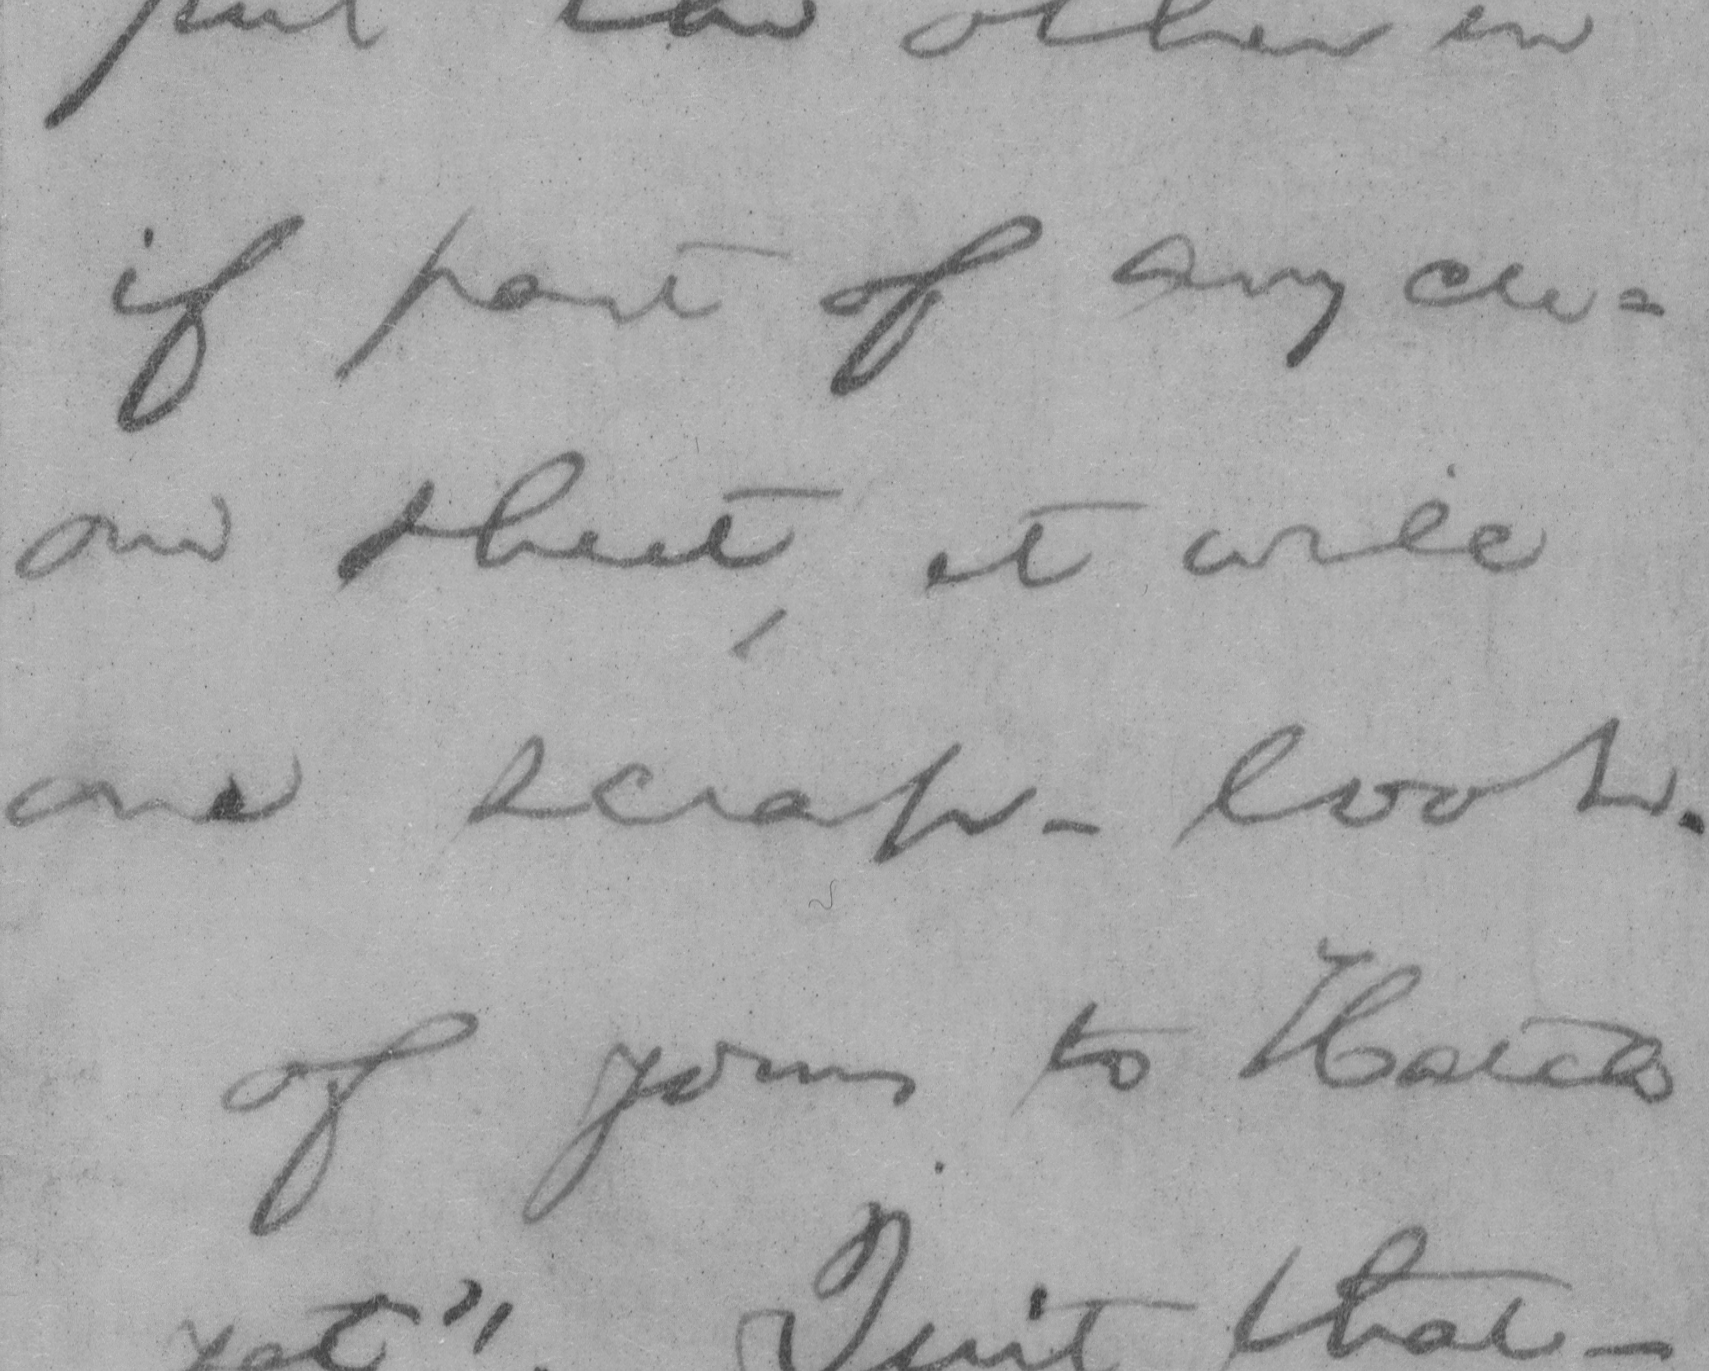 put the other in
if part of any cle=
on sheet, it will
one scrap- book.
of yours to Hatch
yet". Quit that-